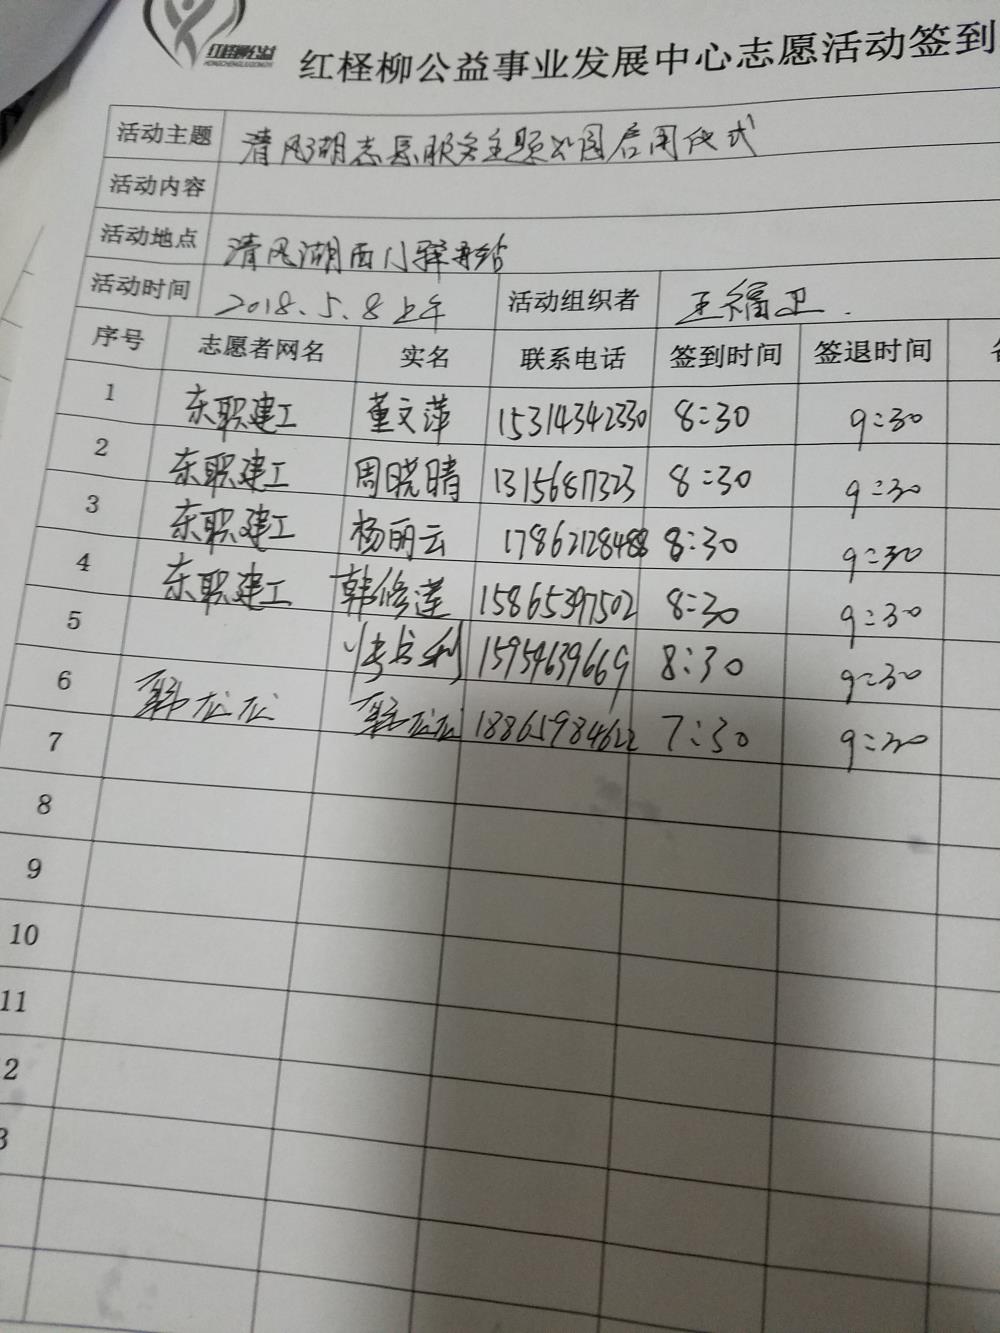 红柽柳公益
HONGCHENGLIUGONGYI
红柽柳公益事业发展中心志愿活动签到
活动主题 清风湖志愿服务主题公园启用仪式
活动内容
活动地点 清风湖西门驿站
活动时间 2018.5.8上午 活动组织者 王福卫.
序号 志愿者网名 实名 联系电话 签到时间 签退时间
1 东职建工 董文萍 15314342330 8:30 9:30
2 东职建工 周晓晴 13156817323 8:30 9:30
3 东职建工 杨丽云 17862128488 8:30 9:30
4 东职建工 韩修莲 15865397502 8:30 9:30
5 15954639669 8:30 9:30
6 18865984622 7:30 9:30
7
8
9
10
11
2
3